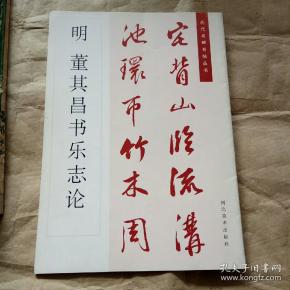 历代名碑名帖丛书
宅背山临流沟
池环匝竹木周
明 董其昌书乐志论
河北美术出版社
孔夫子旧书网